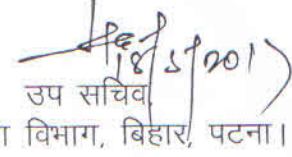 18/5/2017
उप सचिव
विभाग, बिहार, पटना।